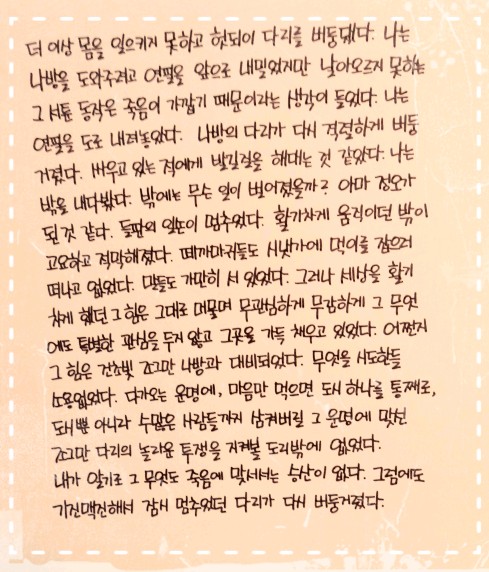 더 이상 몸을 일으키지 못하고 헛되이 다리를 버둥댔다. 나는
나방을 도와주려고 연필을 앞으로 내밀었지만 날아오르지 못하는
그 서툰 동작은 죽음이 가깝기 때문이라는 생각이 들었다. 나는
연필을 도로 내려놓았다. 나방의 다리가 다시 격렬하게 버둥
거렸다. 싸우고 있는 적에게 발길질을 해대는 것 같았다. 나는
밖을 내다봤다. 밖에는 무슨 일이 벌어졌을까? 아마 정오가
된 것 같다. 들판의 일손이 멈추었다. 활기차게 움직이던 밖이
고요하고 적막해졌다. 떼까마귀들도 시냇가에 먹이를 잡으러
떠나고 없었다. 말들도 가만히 서 있었다. 그러나 세상을 활기
차게 했던 그 힘은 그대로 머물며 무관심하게 무감하게 그 무엇
에도 특별한 관심을 두지 않고 그곳을 가득 채우고 있었다. 어쩐지
그 힘은 건초빛 조그만 나방과 대비되었다. 무엇을 시도한들
소용없었다. 다가오는 운명에, 마음만 먹으면 도시 하나를 통째로,
도시뿐 아니라 수많은 사람들까지 삼켜버릴 그 운명에 맞선
조그만 다리의 놀라운 투쟁을 지켜볼 도리밖에 없었다.
내가 알기로 그 무엇도 죽음에 맞서서는 승산이 없다. 그럼에도
기진맥진해서 잠시 멈추었던 다리가 다시 버둥거렸다.